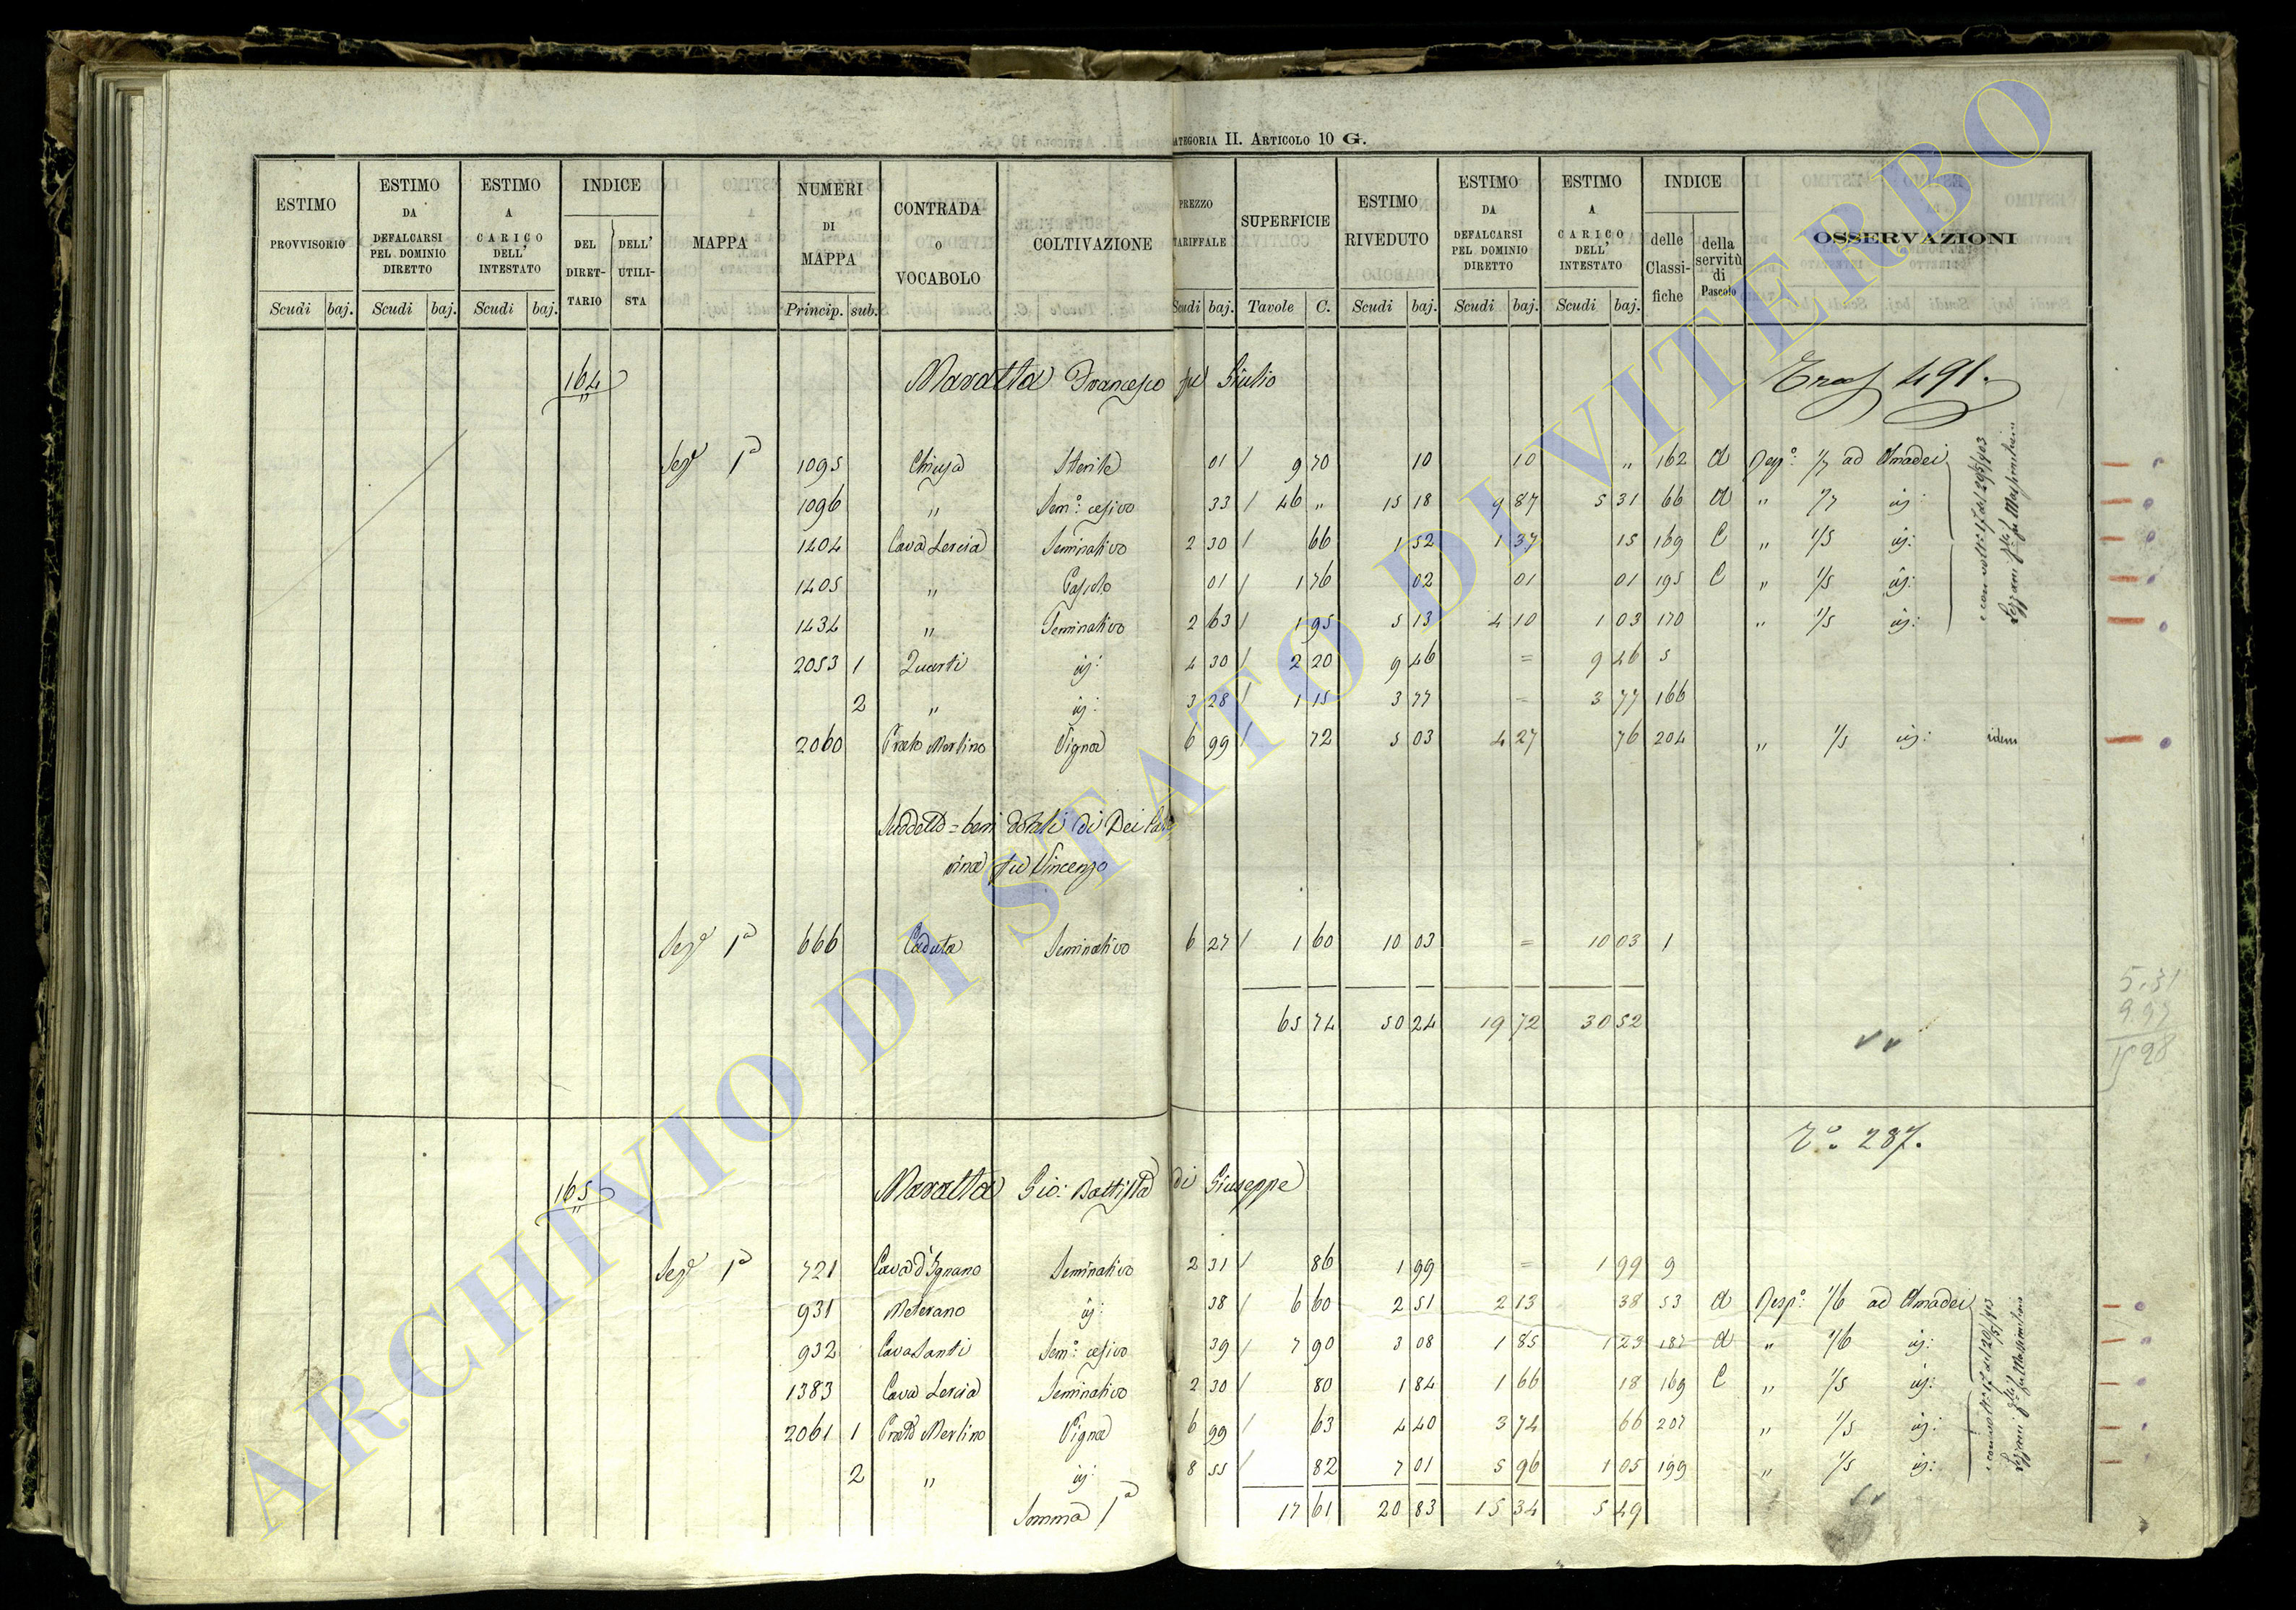 CATEGORIA II. ARTICOLO 10 G.
ESTIMO PROVVISORIO Scudi baj.
ESTIMO DA DEFALCARSI PEL DOMINIO DIRETTO Scudi baj.
ESTIMO A CARICO DELL' INTESTATO Scudi baj.
INDICE DEL DIRETTARIO DELL' UTILISTA
MAPPA
NUMERI DI MAPPA Princip. sub.
CONTRADA O VOCABOLO
COLTIVAZIONE
PREZZO TARIFFALE Scudi baj.
SUPERFICIE Tavole C.
ESTIMO RIVEDUTO Scudi baj.
ESTIMO DA DEFALCARSI PEL DOMINIO DIRETTO Scudi baj.
ESTIMO A CARICO DELL' INTESTATO Scudi baj.
INDICE delle Classifiche della servitù di Pascolo
OSSERVAZIONI
164 Maratta Francesco fu Giulio 491.
Sez.e 1a 1095 Chiusa Sterile 01 / 9 70 10 10 " 162 a Risp.o: 1/7 ad Amadei
1096 " Sem.o: cesivo 33 / 46 " 15 18 9 87 5 31 66 a " 1/7 id:
1404 Cava Lercia Seminativo 2 30 / 66 1 52 1 37 15 169 C " 1/5 id:
1405 " Pascolo 01 / 1 76 02 01 01 195 C " 1/5 id:
1434 " Seminativo 2 63 / 1 95 5 13 4 10 1 03 170 " 1/5 id:
2053 1 Quarti id: 4 30 / 2 20 9 46 = 9 46 5
2 " id: 3 28 / 1 15 3 77 = 3 77 166
2060 Prato Merlino Vigna 6 99 / 72 5 03 4 27 76 204 " 1/5 id: idem
Suddetto = beni dotali di Dei
fu Vincenzo
Sez.e 1a 666 Caduta Seminativo 6 27 / 1 60 10 03 = 10 03 1
65 74 50 24 19 72 30 52
5.31
9 97
15 28
287.
165 Maratta Gio: Battista di Giuseppe
Sez.e 1a 721 Cava d'Ignano Seminativo 2 31 / 86 1 99 = 1 99 9
931 Meterano id: 38 / 6 60 2 51 2 13 38 53 a Risp.o: 1/6 ad Amadei
932 Cava Santi Sem.o: cesivo 39 / 7 90 3 08 1 85 1 23 187 a " 1/6 id:
1383 Cava Lercia Seminativo 2 30 / 80 1 84 1 66 18 169 C " 1/5 id:
2061 1 Prato Merlino Vigna 6 99 / 63 4 40 3 74 66 207 " 1/5 id:
2 " id: 8 55 / 82 7 01 5 96 1 05 199 " 1/5 id:
Somma 1a 17 61 20 83 15 34 5 49
ARCHIVIO DI STATO DI VITERBO